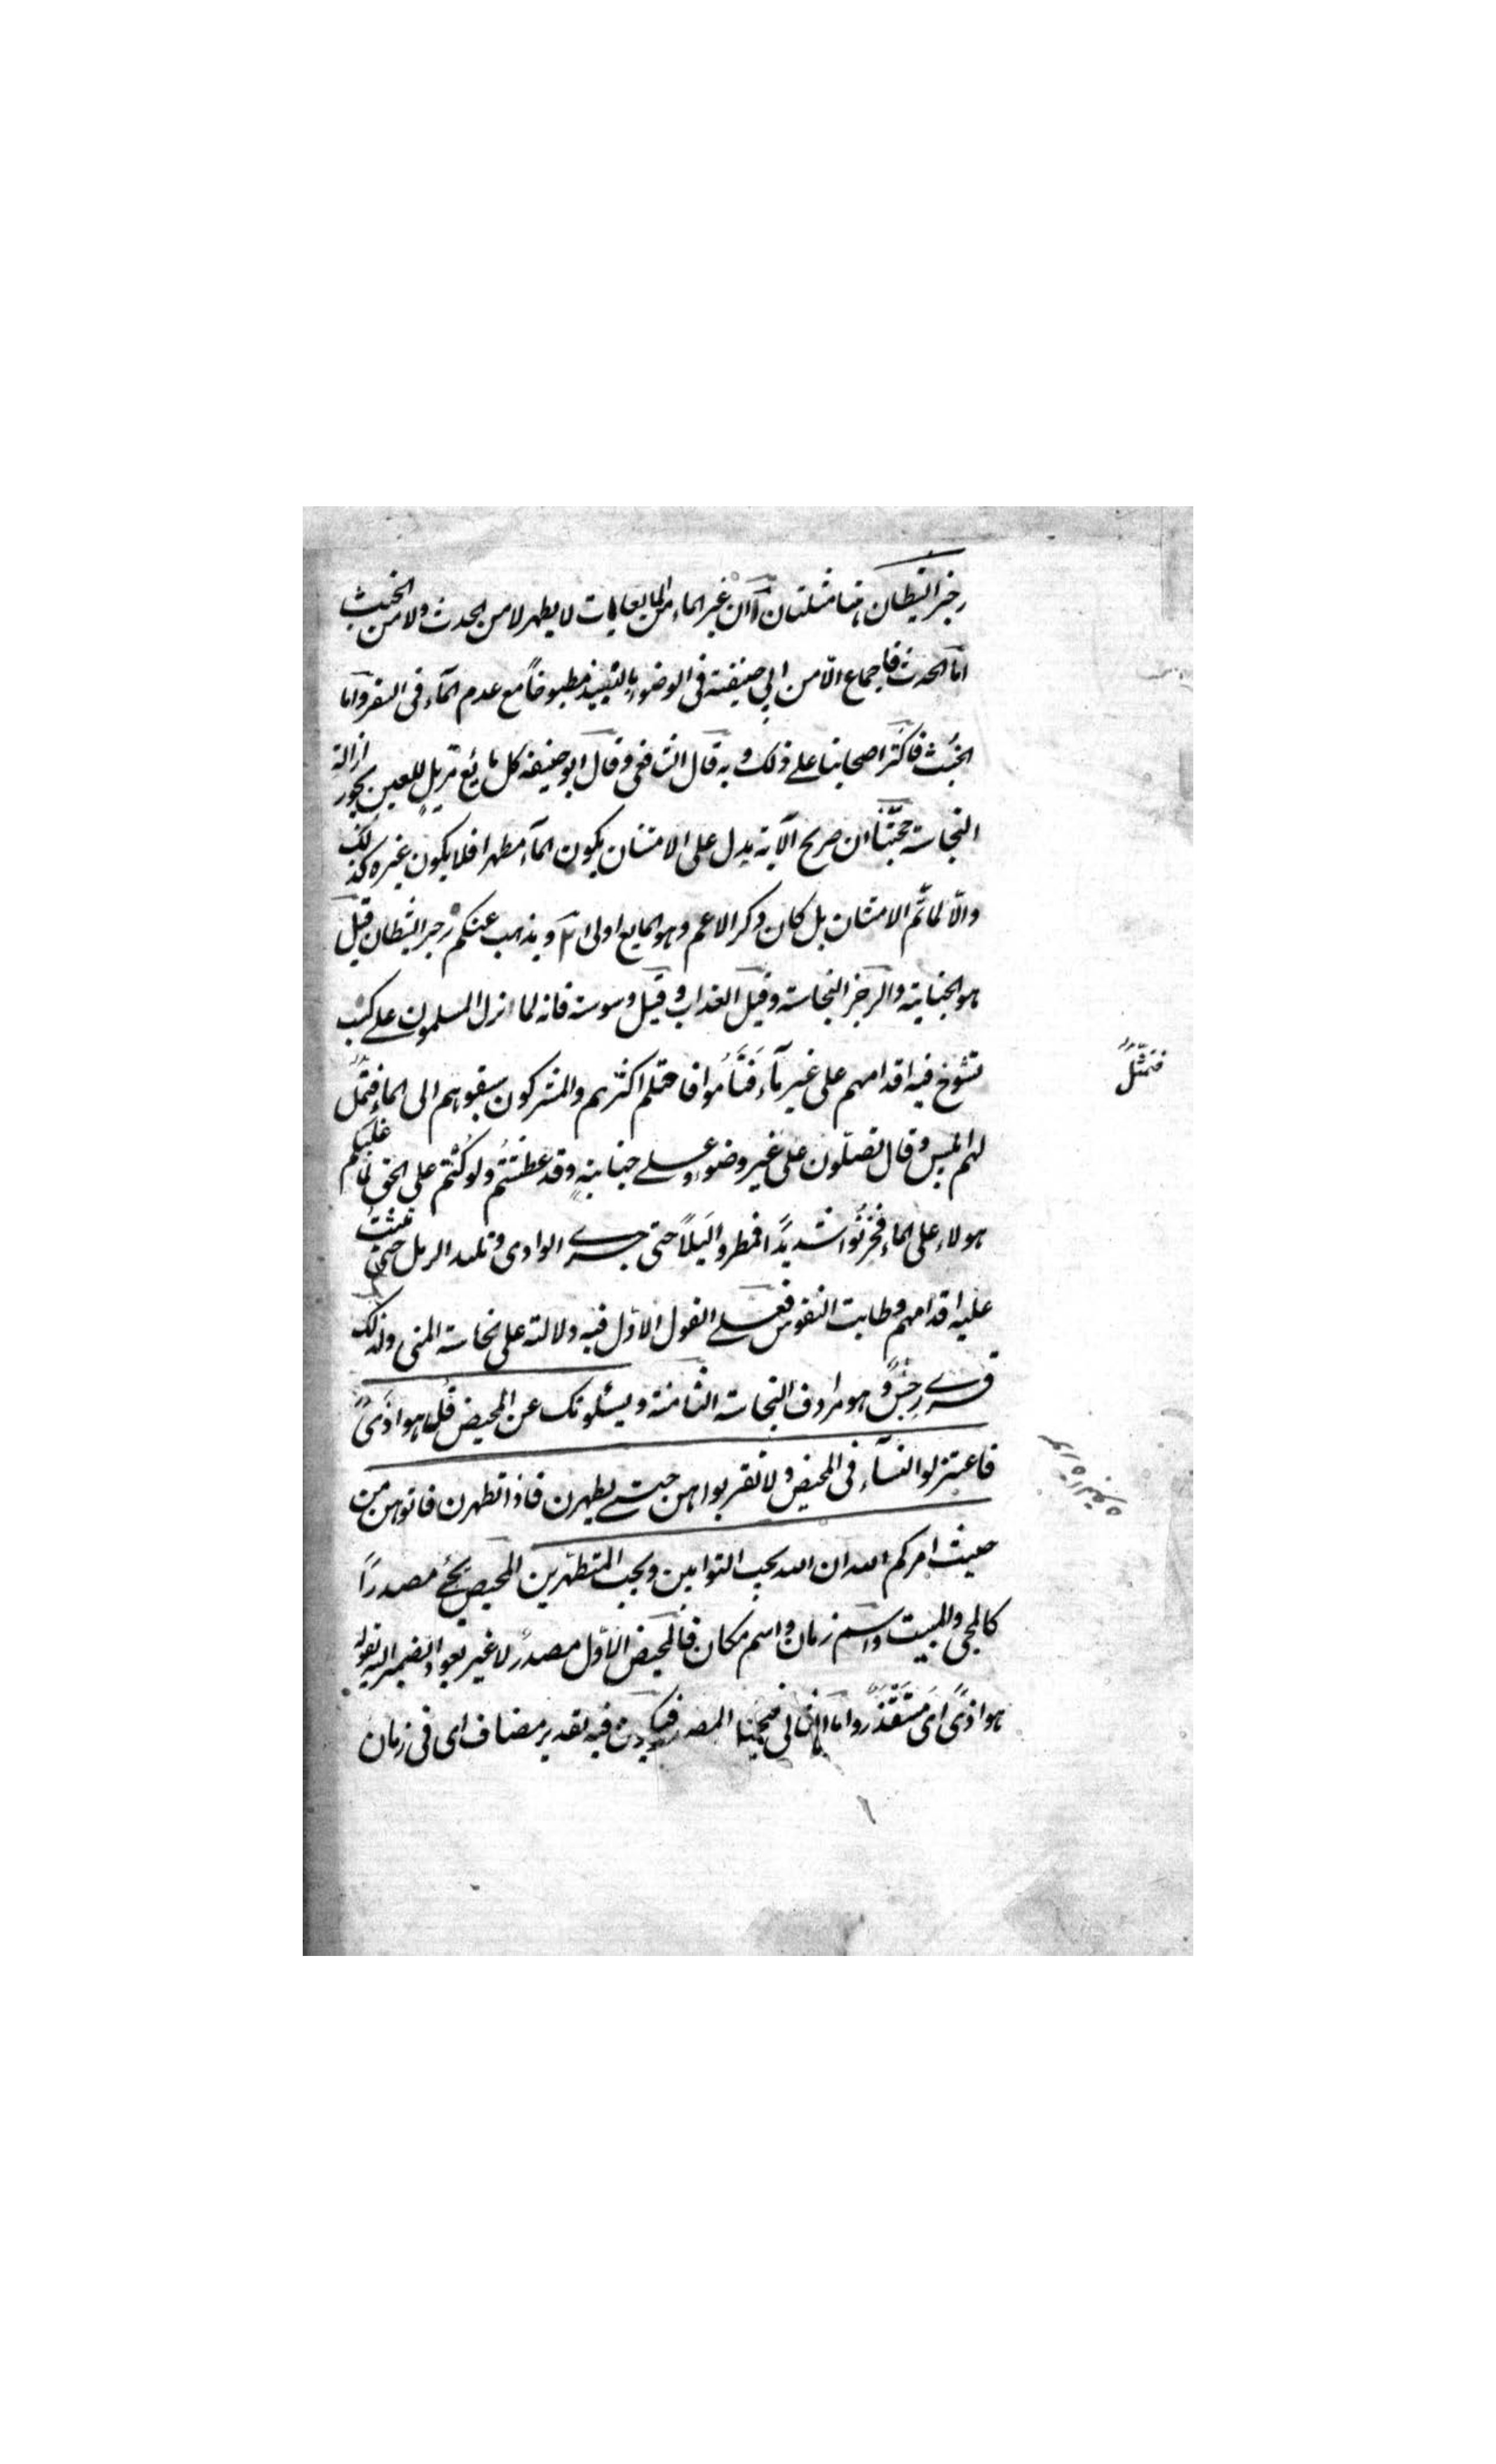 رجز الشيطان هنا مسئلتان آ ان غير الماء من المايعات لا يطهر لا من الحدث ولا من الخبث
اما الحدث فاجماع الّا من ابي حنيفة في الوضوء بالنبيذ مطبوخاً مع عدم المآء في السفر واما
الخبث فاكثر اصحابنا على ذلك وبه قال الشافعي وقال ابو حنيفه كل مايع مزيل للعين يجوز ازالة
النجاسة حجّتنا ان صريح الآية يدل على الامتنان بكون المآء مطهرا فلا يكون غيره كذلك
والّا لما تمّ الامتنان بل كان ذكر الاعم وهو المايع اولى ٢ ويذهب عنكم رجز الشيطان قيل
هو الجنابة والرجز النجاسة وقيل العذاب وقيل وسوسته فانه لما نزل المسلمون على كثيب
تسوخ فيه اقدامهم على غير مآء فَنَامُوا فاحتلم اكثرهم والمشركون سبقوهم الى الماء فتمثّل
لهم ابليس وقال تصلّون على غير وضوء وعلى جنابةٍ وقد عطشتم ولو كنتم على الحق لما غلبكم
هولاء على الماء فحزنوا شديدًا فمطروا ليلاً حتى جرى الوادي وتلبد الرمل حتى تثبت
عليه اقدامهم وطابت النفوس فعلى القول الاوّل فيه دلالة على نجاسة المني ولذلك
قرى رجس وهو مرادف النجاسة الثامنة ويسئلونك عن المحيض قل هو اذًى
فاعتزلوا النسآء في المحيض ولا تقربوا هن حتى يطهرن فاذا تطهرن فاتوهن من
حيث امركم الله ان الله يحب التوابين ويحب المتطهّرين المحيض يجئ مصدراً
كالمجي والمبيت واسم زمان واسم مكان فالمحيض الاوّل مصدرٌ لا غير لعود الضمير اليه بقوله
هو اذًى اى مستقذرٌ واما الثاني فيحتمل المصدر فيكون فيه تقدير مضاف اى في زمان
فتمثّل